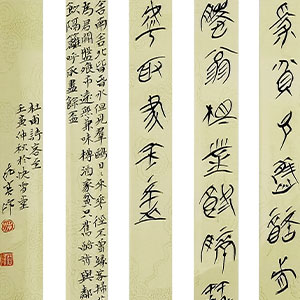 家貧只舊醅肯
鄰翁相對飲隔籬
呼取盡余杯
舍南舍北皆春水但見群鷗日日來花徑不曾緣客掃
為君開盤飧市遠無兼味樽酒家貧只舊醅肯與鄰
飲隔籬呼取盡餘盃
杜甫詩客至
壬寅仲秋於快雪堂